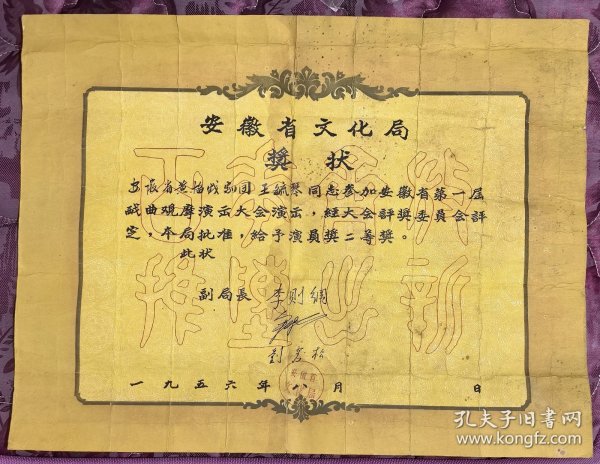 安徽省文化局
獎狀
安徽省黄梅戏剧团王毓琴同志参加安徽省第一届
戏曲观摩演出大会演出，经大会評奖委員会評
定，本局批准，給予演員奖二等奖。
此状
副局長 李则纲
刘芳松
一九五六年八月 日
孔夫子旧书网
www.kongfz.com